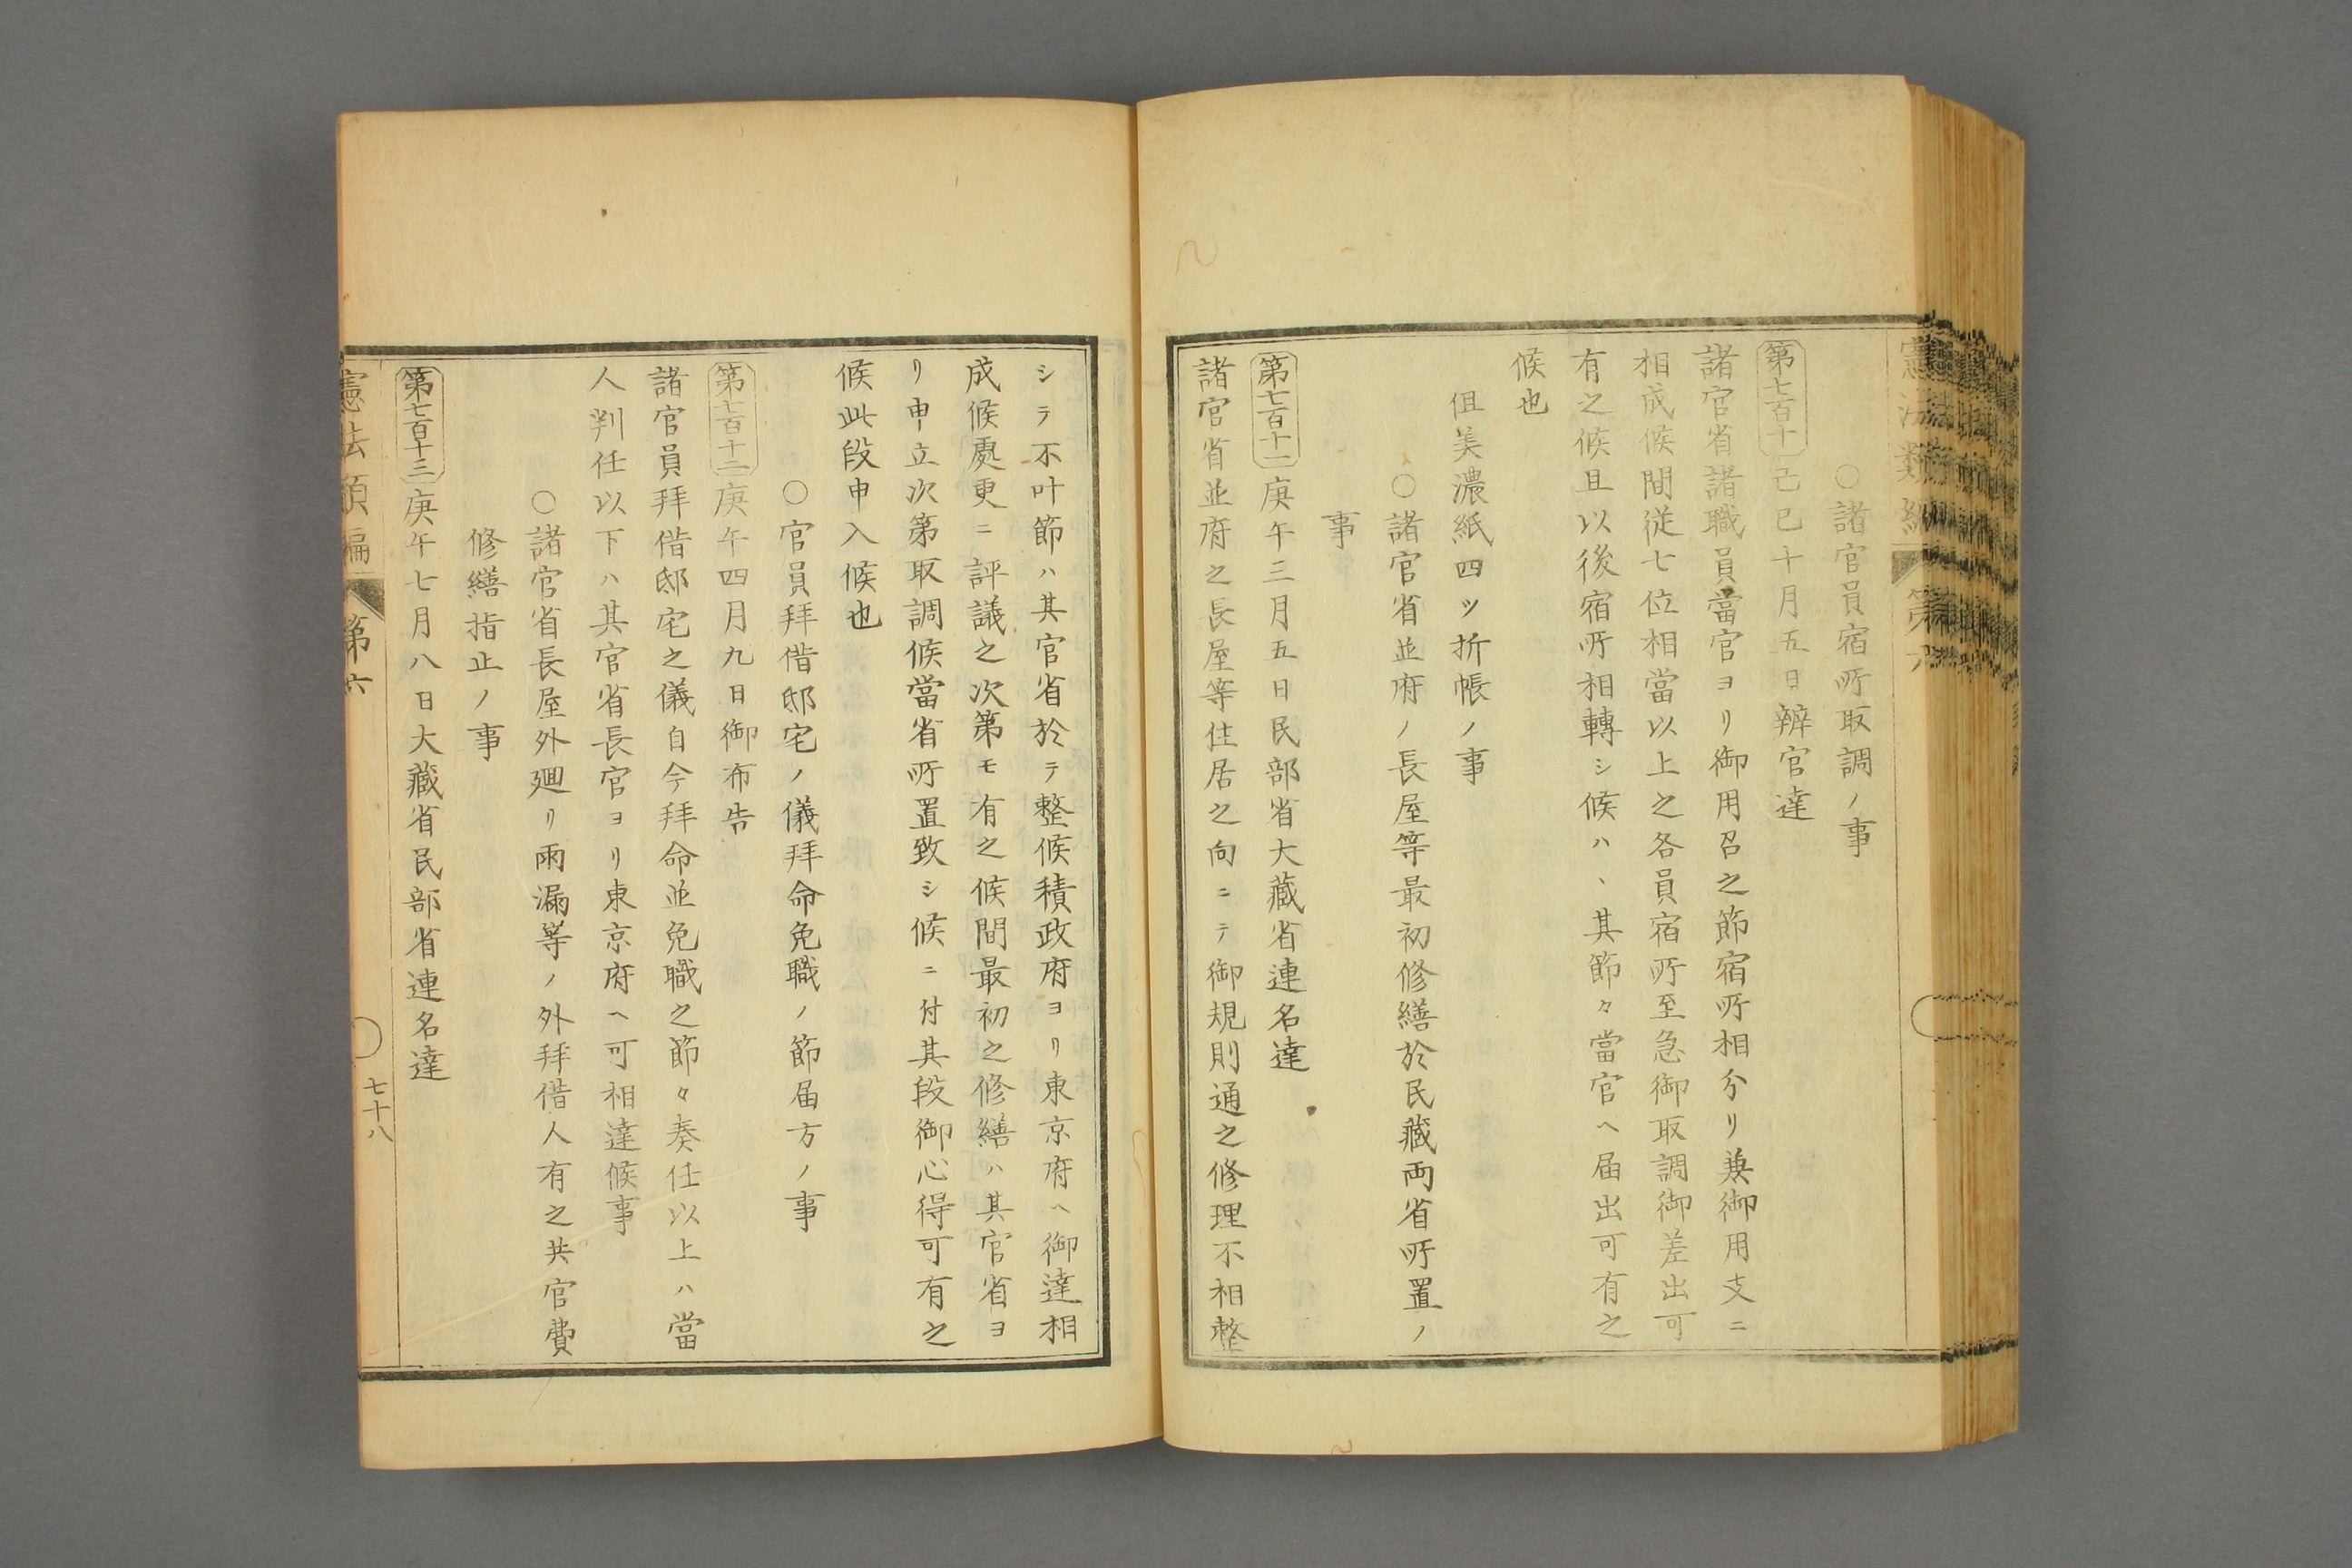 憲法類編 第六
〇諸官員宿所取調ノ事
第七百十 己巳十月五日辨官達
諸官省諸職員當官ヨリ御用召之節宿所相分リ兼御用支ニ
相成候間従七位相當以上之各員宿所至急御取調御差出可
有之候且以後宿所相轉シ候ハヽ其節々當官ヘ届出可有之
候也
但美濃紙四ツ折帳ノ事
〇諸官省並府ノ長屋等最初修繕於民藏両省所置ノ
事
第七百十一 庚午三月五日民部省大藏省連名達
諸官省並府之長屋等住居之向ニテ御規則通之修理不相整
シテ不叶節ハ其官省於テ整候積政府ヨリ東京府ヘ御達相
成候處更ニ評議之次第モ有之候間最初之修繕ハ其官省ヨ
リ申立次第取調候當省所置致シ候ニ付其段御心得可有之
候此段申入候也
〇官員拜借邸宅ノ儀拜命免職ノ節届方ノ事
第七百十二 庚午四月九日御布告
諸官員拜借邸宅之儀自今拜命並免職之節々奏任以上ハ當
人判任以下ハ其官省長官ヨリ東京府ヘ可相達候事
〇諸官省長屋外廻リ雨漏等ノ外拜借人有之共官費
修繕指止ノ事
第七百十三 庚午七月八日大藏省民部省連名達
憲法類編 第六 七十八